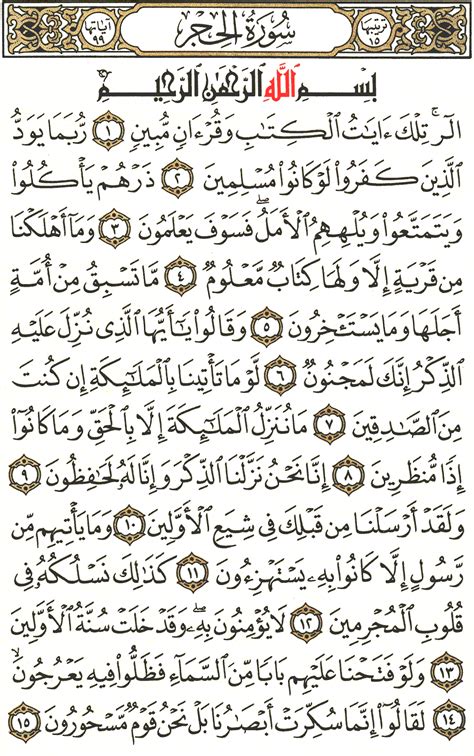 ترتيبها ١٥ سُورَةُ الحِجر آياتها ٩٩
بِسْمِ اللَّهِ الرَّحْمَٰنِ الرَّحِيمِ
الٓرۚ تِلْكَ ءَايَٰتُ ٱلْكِتَٰبِ وَقُرْءَانٍ مُّبِينٍ ١ رُّبَمَا يَوَدُّ
ٱلَّذِينَ كَفَرُوا۟ لَوْ كَانُوا۟ مُسْلِمِينَ ٢ ذَرْهُمْ يَأْكُلُوا۟
وَيَتَمَتَّعُوا۟ وَيُلْهِهِمُ ٱلْأَمَلُ ۖ فَسَوْفَ يَعْلَمُونَ ٣ وَمَآ أَهْلَكْنَا
مِن قَرْيَةٍ إِلَّا وَلَهَا كِتَابٌ مَّعْلُومٌ ٤ مَّا تَسْبِقُ مِنْ أُمَّةٍ
أَجَلَهَا وَمَا يَسْتَـْٔخِرُونَ ٥ وَقَالُوا۟ يَٰٓأَيُّهَا ٱلَّذِى نُزِّلَ عَلَيْهِ
ٱلذِّكْرُ إِنَّكَ لَمَجْنُونٌ ٦ لَّوْ مَا تَأْتِينَا بِٱلْمَلَٰٓئِكَةِ إِن كُنتَ
مِنَ ٱلصَّٰدِقِينَ ٧ مَا نُنَزِّلُ ٱلْمَلَٰٓئِكَةَ إِلَّا بِٱلْحَقِّ وَمَا كَانُوٓا۟
إِذًا مُّنظَرِينَ ٨ إِنَّا نَحْنُ نَزَّلْنَا ٱلذِّكْرَ وَإِنَّا لَهُۥ لَحَٰفِظُونَ ٩
وَلَقَدْ أَرْسَلْنَا مِن قَبْلِكَ فِى شِيَعِ ٱلْأَوَّلِينَ ١٠ وَمَا يَأْتِيهِم مِّن
رَّسُولٍ إِلَّا كَانُوا۟ بِهِۦ يَسْتَهْزِءُونَ ١١ كَذَٰلِكَ نَسْلُكُهُۥ فِى
قُلُوبِ ٱلْمُجْرِمِينَ ١٢ لَا يُؤْمِنُونَ بِهِۦ ۖ وَقَدْ خَلَتْ سُنَّةُ ٱلْأَوَّلِينَ
١٣ وَلَوْ فَتَحْنَا عَلَيْهِم بَابًا مِّنَ ٱلسَّمَآءِ فَظَلُّوا۟ فِيهِ يَعْرُجُونَ
١٤ لَقَالُوٓا۟ إِنَّمَا سُكِّرَتْ أَبْصَٰرُنَا بَلْ نَحْنُ قَوْمٌ مَّسْحُورُونَ ١٥